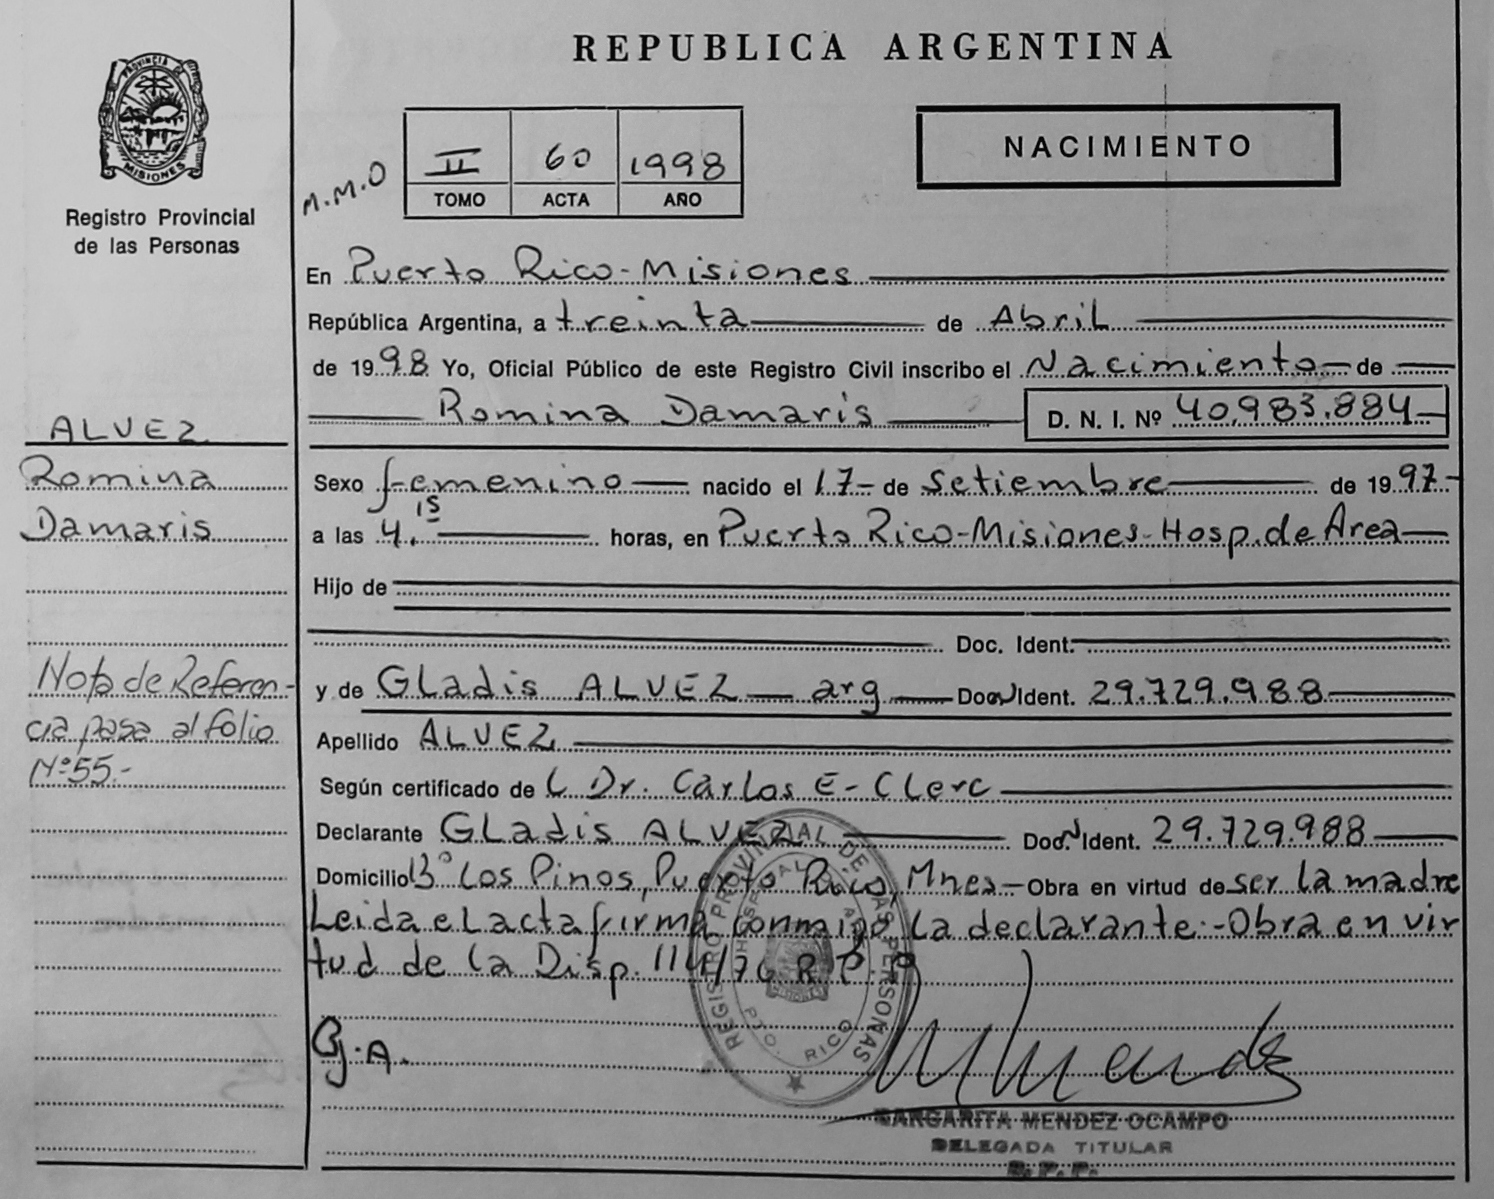 REPUBLICA ARGENTINA
PROVINCIA DE
MISIONES
Registro Provincial
de las Personas
M.M.O
II 60 1998
TOMO ACTA AÑO
NACIMIENTO
En Puerto Rico-Misiones
República Argentina, a treinta de Abril
de 1998 Yo, Oficial Público de este Registro Civil inscribo el Nacimiento de
Romina Damaris D. N. I. Nº 40,983.884
ALVEZ
Romina
Damaris
Sexo femenino nacido el 17- de Setiembre de 1997-
a las 4.15 horas, en Puerto Rico-Misiones-Hosp.de Area
Hijo de
Doc. Ident.
Nota de Referen-
cia pasa al folio
Nº 55.-
y de Gladis ALVEZ arg Doc.N Ident. 29.729.988
Apellido ALVEZ
Según certificado de L Dr. Carlos E- Clerc
Declarante Gladis ALVEZ Doc.N Ident. 29.729.988
Domicilio Bº Los Pinos, Puerto Rico, Mnes- Obra en virtud de ser la madre
Leida el acta firma conmigo la declarante:-Obra en vir
tud de la Disp. 114/76 R.P.P
G.A.
REGISTRO PROVINCIAL DE LAS PERSONAS
HOSPITAL DE AREA
PTO. RICO
MARGARITA MENDEZ OCAMPO
DELEGADA TITULAR
R.P.P.